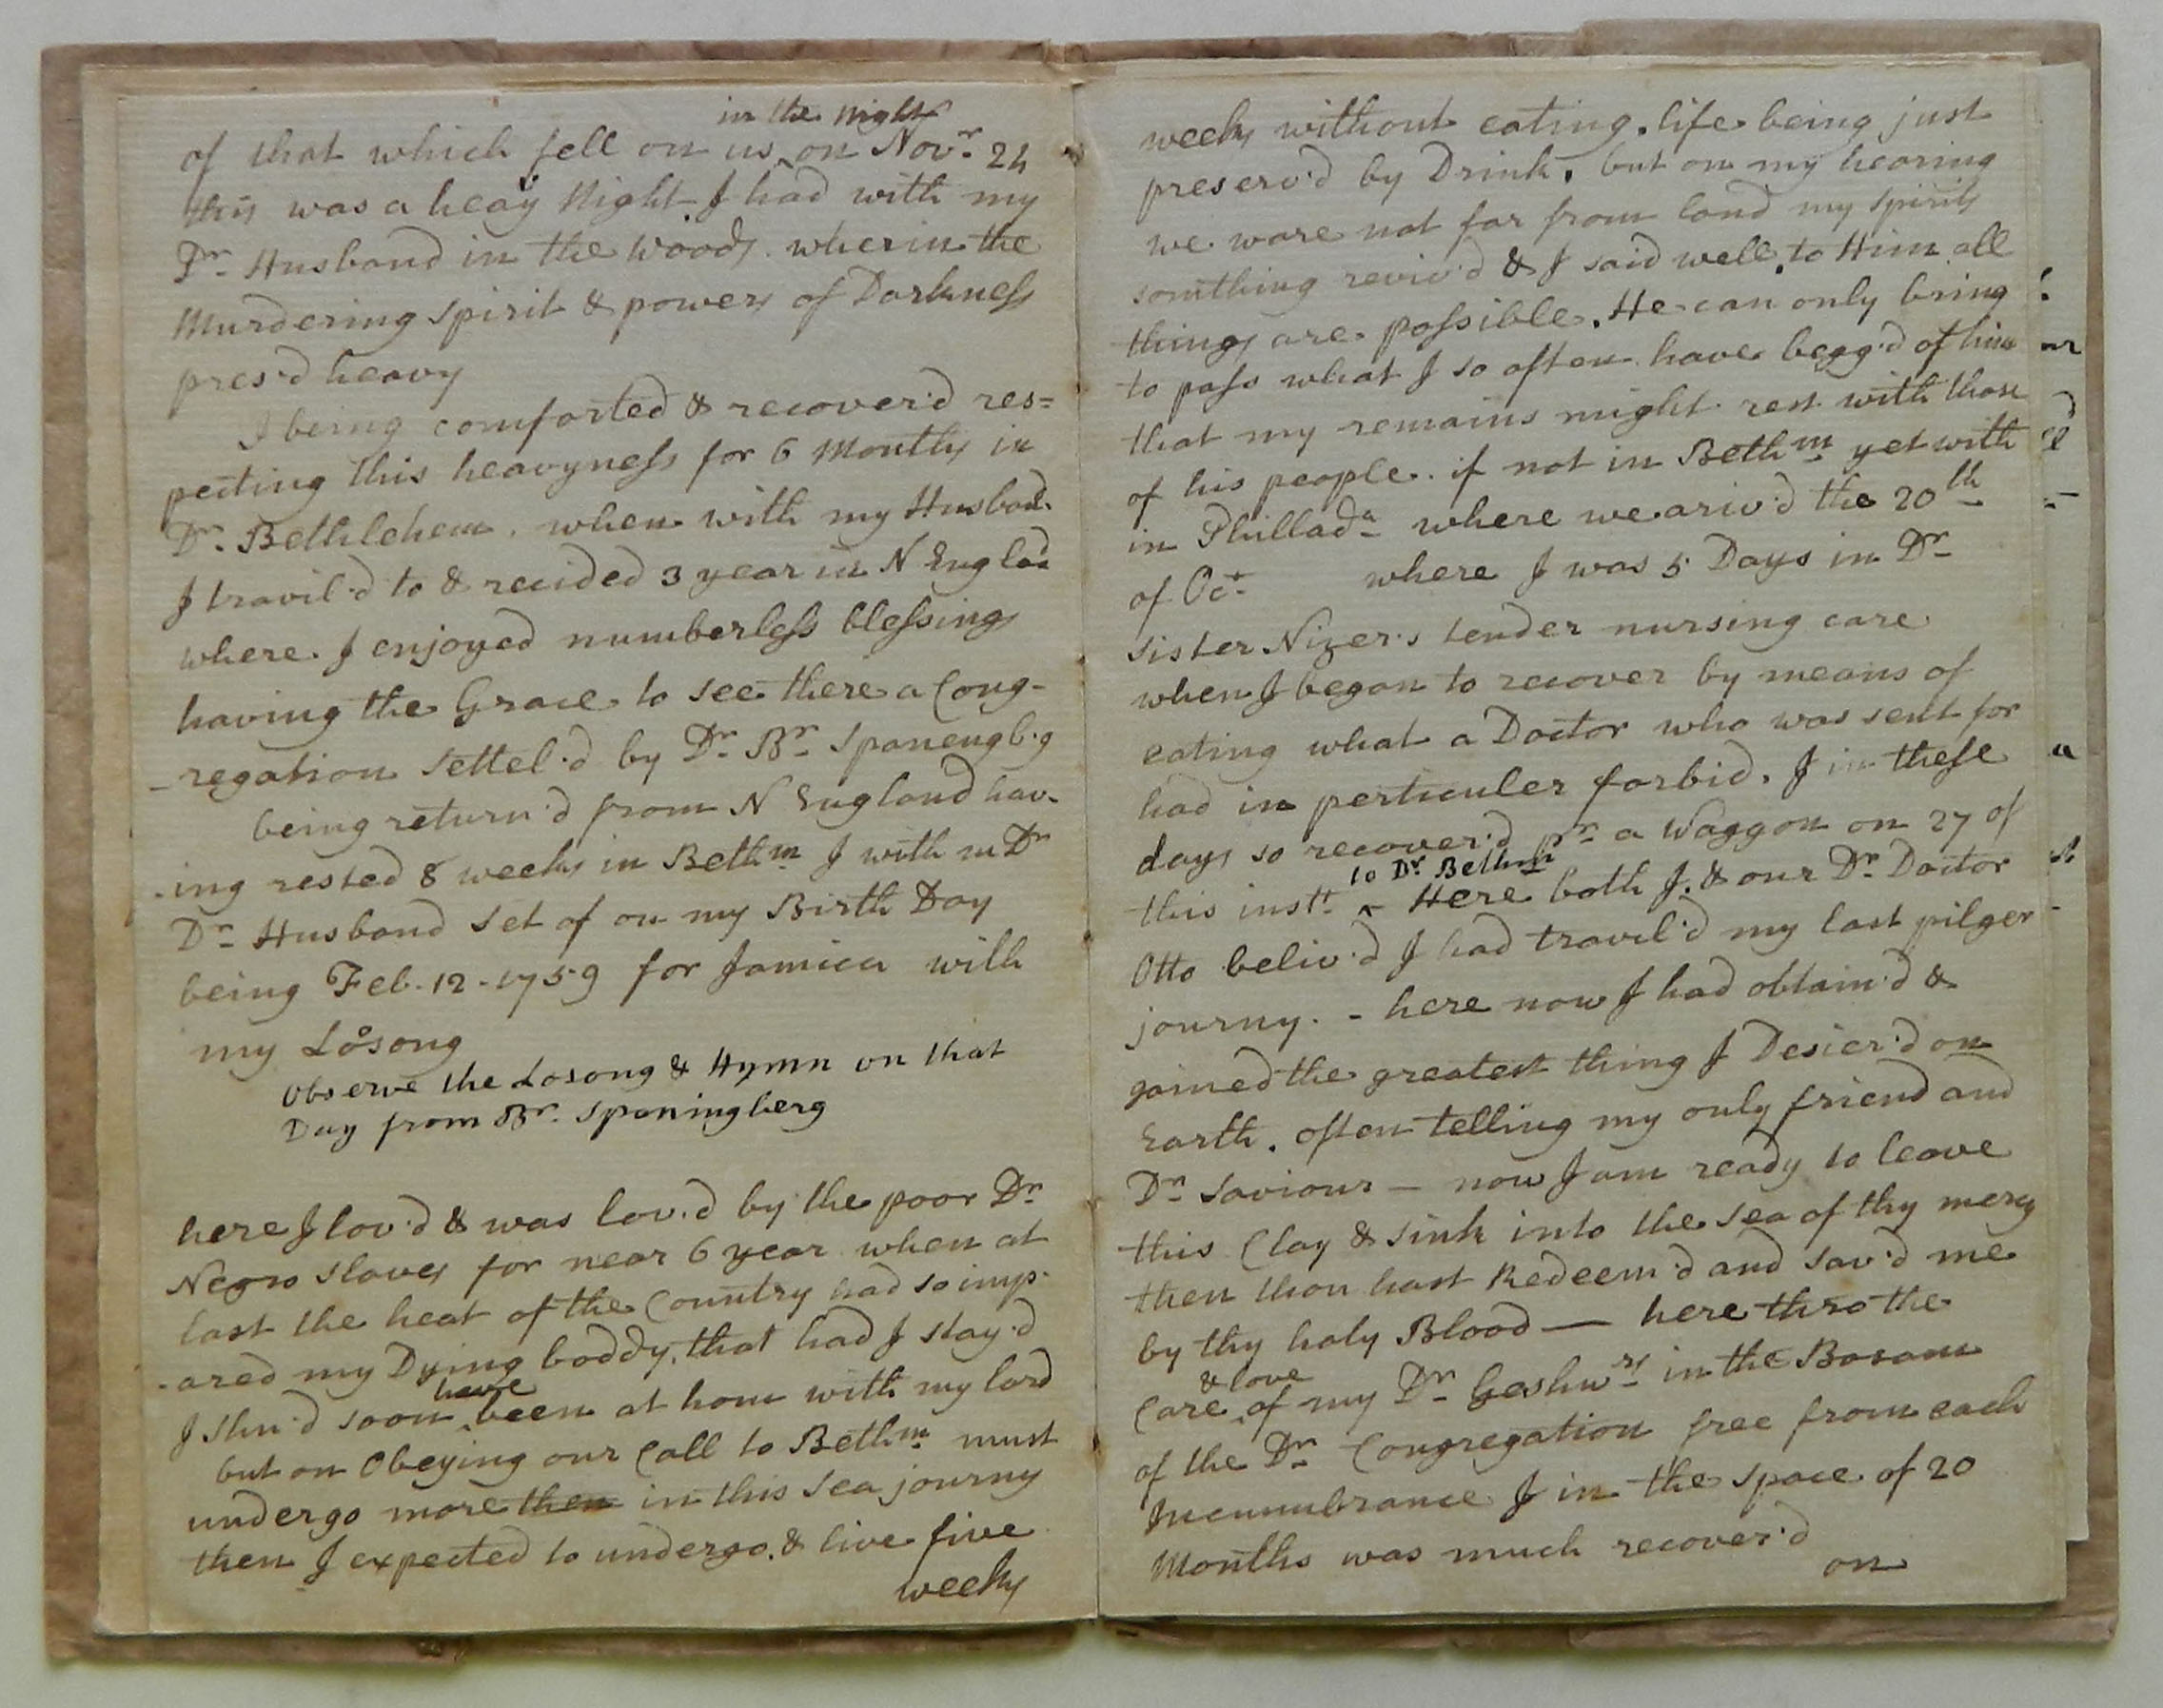 in the Night
of that which fell on us ‸ on Novr. 24
this was a heay Night. I had with my
Dr. Husband in the Woods. wherin the
Murdering Spirit & powers of Darkness
pres'd heavy
I being comforted & recover'd res=
pecting this heavyness for 6 Months in
Dr. Bethlehem. when with my Husband.
I travil'd to & recided 3 year in N Englad
where I enjoyed numberless blessings
having the Grace to see there a Cong-
-regation Settel'd by Dr. Br. Spanengb.g
being return'd from N England hav-
-ing rested 8 weeks in Bethm. I with m Dr
Dr. Husband Set of on my Birth Day
being Feb. 12 - 1759 for Jamica with
my Losong
Observe the Losong & Hymn on that
Day from Br. Spaningberg
here I lov'd & was lov'd by the poor Dr.
Negro slaves for near 6 year when at
last the heat of the Country had so imp-
-ared my Dying boddy, that had I stay'd
have
I shu'd soon ‸ been at hom with my lord
but on Obeying our Call to Bethm. must
undergo more then in this Sea journy
then I expected to undergo. & live five
weeks
weeks without eating. life being just
preserv'd by Drink. but on my hearing
we ware not far from land my Spirits
somthing reviv'd & I said well, to Him all
things are possible. He can only bring
to pass what I so often have begg'd of him
that my remains might rest with those
of his people. if not in Bethm. yet with
in Phillada. where we ariv'd the 20th
of Oct. where I was 5 Days in Dr.
Sister Nizer's tender nursing care
when I began to recover by means of
eating what a Doctor who was sent for
had in perticuler forbid. I in these
days so recover'd pr. a Waggon on 27 of
to Dr. Bethm
this instt. ‸ - Here both I. & our Dr. Doctor
Otto beliv'd I had travel'd my last pilger
journy. - here now I had obtain'd &
gained the greatest thing I Desier'd on
Earth. often telling my only friend and
Dr. Saviour — now I am ready to leave
this Clay & sink into the Sea of thy mercy
then thou hast Redeem'd and sav'd me
by thy holy Blood — here thro the
& love
Care ‸ of my Dr. Geshwrs. in the Bosom
of the Dr. Congregation free from each
Incumbrance I in the space of 20
Months was much recover'd
on